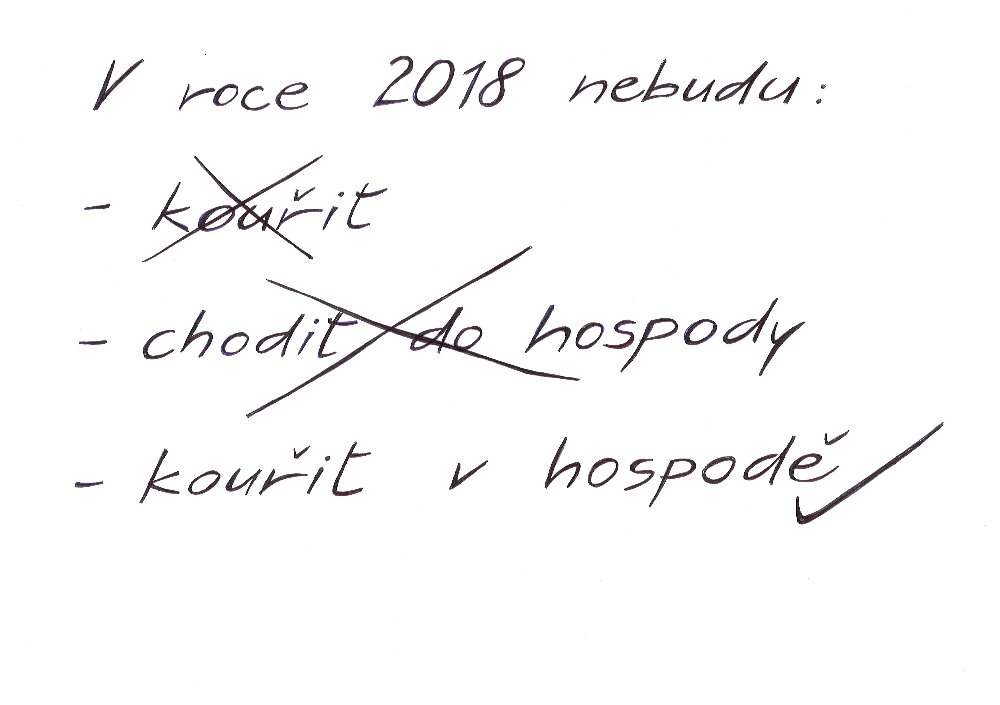 V roce 2018 nebudu:
- kouřit
- chodit do hospody
- kouřit v hospodě